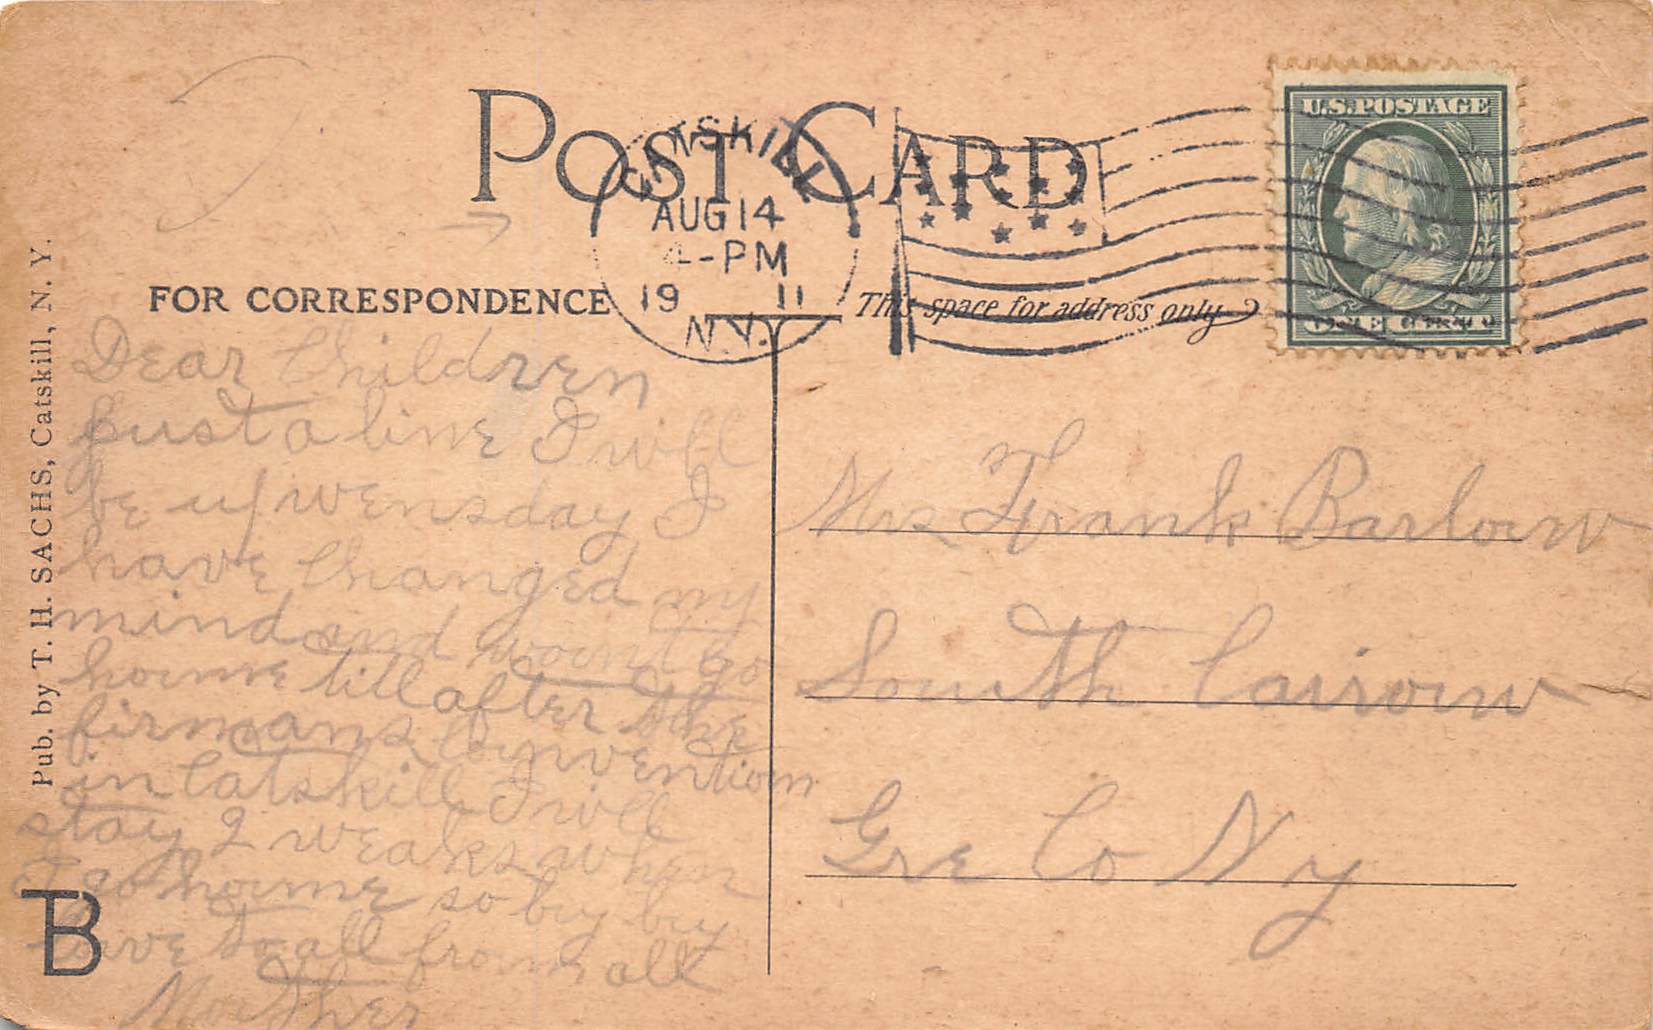 POST CARD
CATSKILL
AUG 14
4-PM
19 11
N.Y.
U.S. POSTAGE
FOR CORRESPONDENCE
This space for address only
Pub. by T. H. SACHS, Catskill, N. Y.
Dear Children
Just a line I will
be up wensday I
have Changed my
mind and wont go
home till after the
firmans Convention
in Catskill I will
stay 2 weaks when
I go home so by by
love to all from all
Mother
TB
Mrs Frank Barlow
South Cairow
Gre Co N y